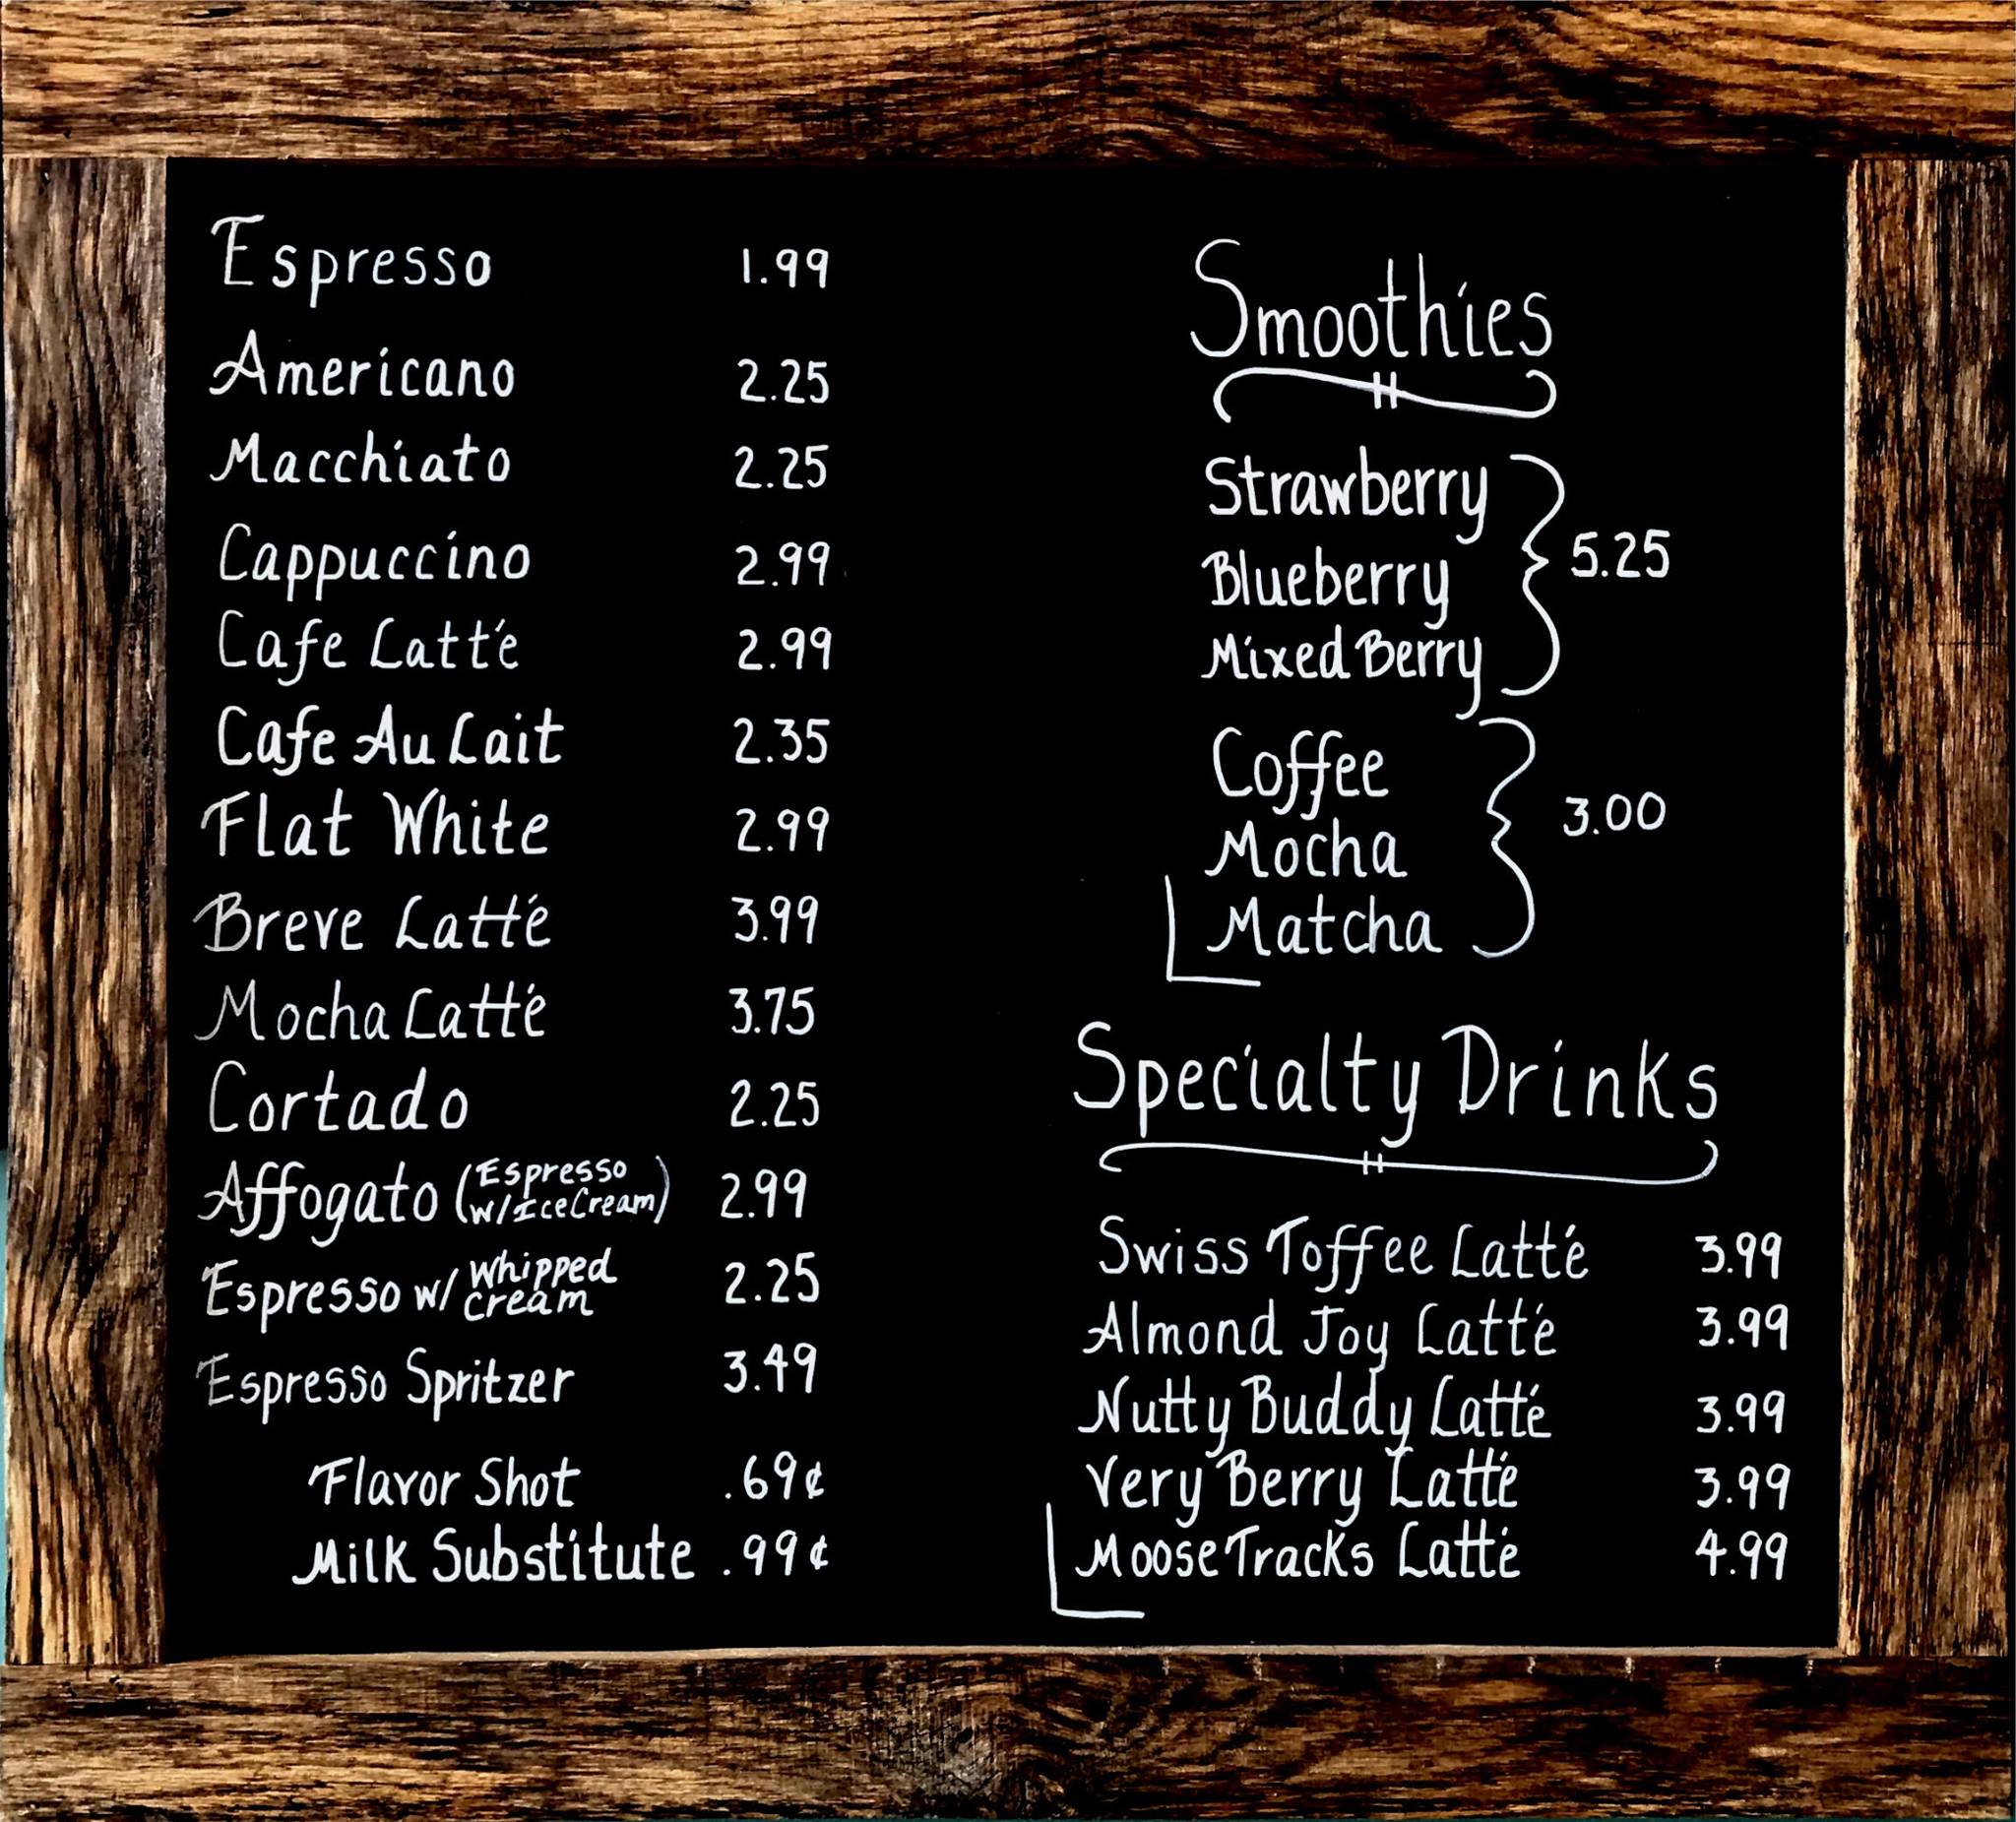 Espresso 1.99
Americano 2.25
Macchiato 2.25
Cappuccino 2.99
Cafe Latté 2.99
Cafe Au Lait 2.35
Flat White 2.99
Breve Latté 3.99
Mocha Latté 3.75
Cortado 2.25
Affogato (Espresso w/ Ice Cream) 2.99
Espresso w/ Whipped Cream 2.25
Espresso Spritzer 3.49
Flavor Shot .69¢
Milk Substitute .99¢
Smoothies
Strawberry
Blueberry 5.25
Mixed Berry
Coffee
Mocha 3.00
Matcha
Specialty Drinks
Swiss Toffee Latté 3.99
Almond Joy Latté 3.99
Nutty Buddy Latté 3.99
Very Berry Latté 3.99
Moose Tracks Latté 4.99